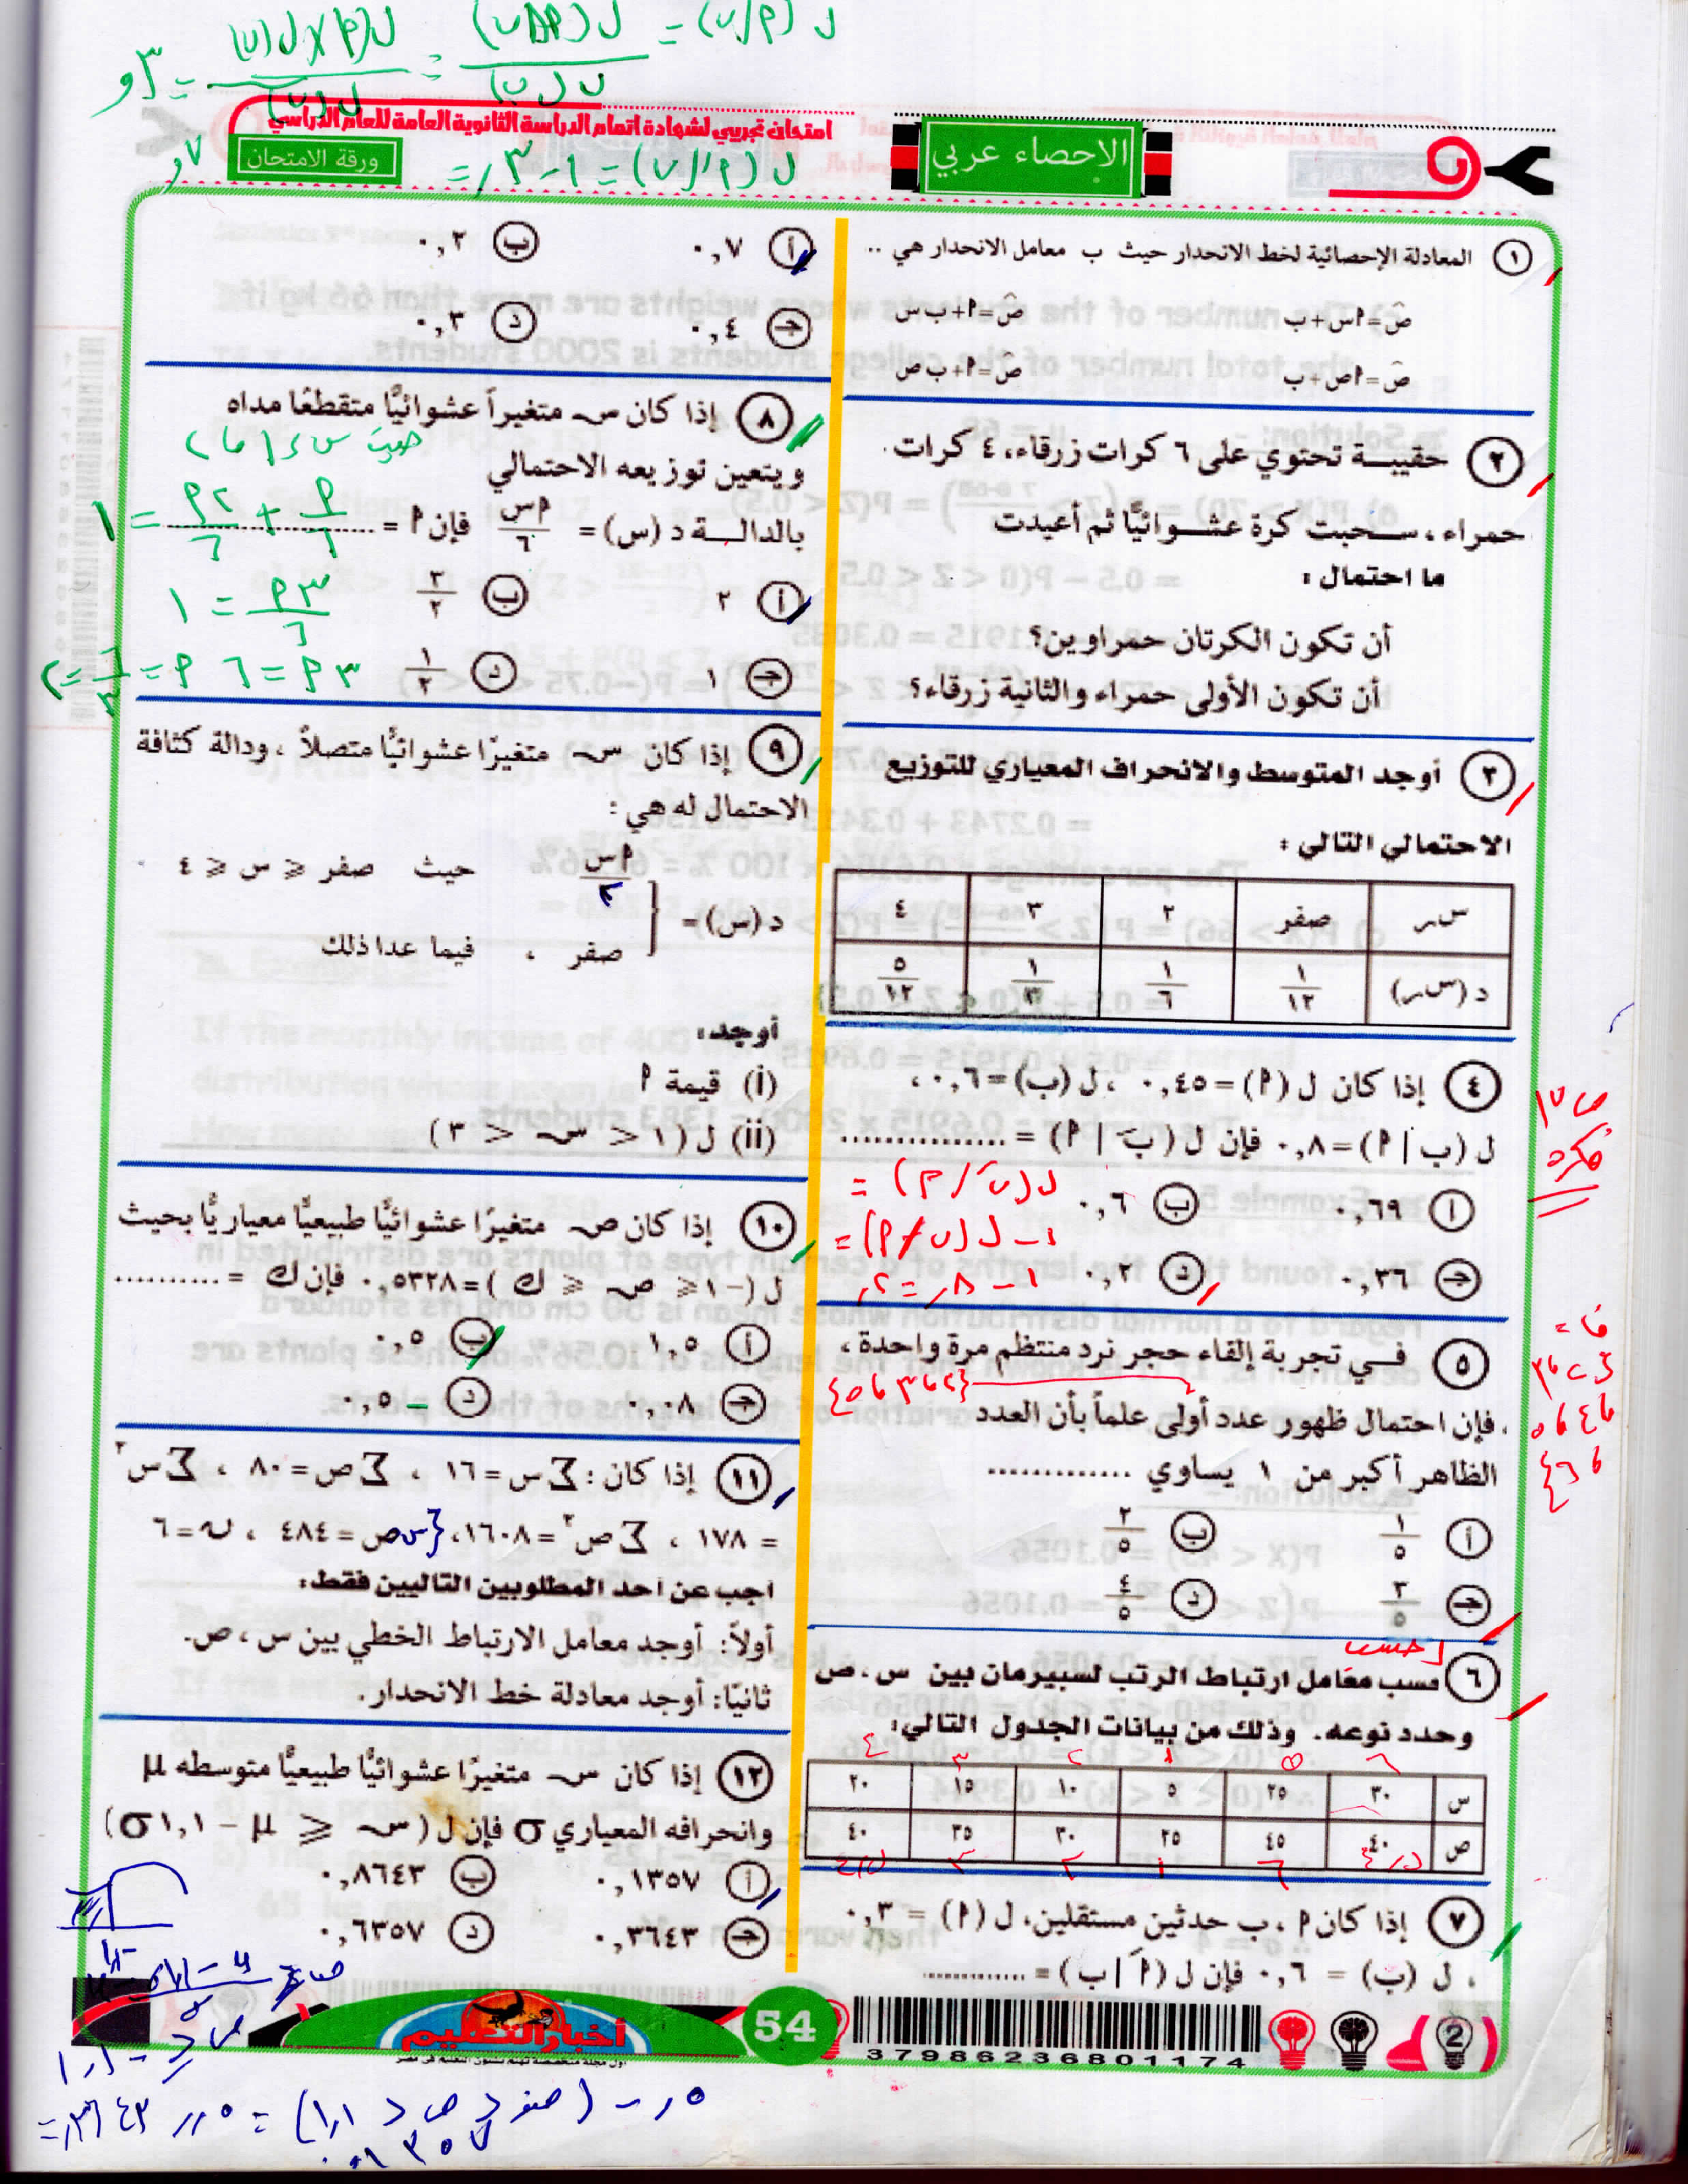 ل (٢/ن) =
امتحان تجريبي لشهادة اتمام الدراسة الثانوية العامة للعام الدراسي
الاحصاء عربي
ورقة الامتحان
١ المعادلة الإحصائية لخط الانحدار حيث ب معامل الانحدار هي ..
صَ=٩س+ب صَ=٩+ب س
صَ=٩ص+ب صَ=٩+ب ص
٢ حقيبة تحتوي على ٦ كرات زرقاء، ٤ كرات
حمراء ، سحبت كرة عشوائيًا ثم أعيدت
ما احتمال :
أن تكون الكرتان حمراوين؟
أن تكون الأولى حمراء والثانية زرقاء؟
٣ أوجد المتوسط والانحراف المعياري للتوزيع
الاحتمالي التالي :
سر صفر ٢ ٣ ٤
د (سر) ١/١٢ ١/٦ ١/٣ ٥/١٢
٤ إذا كان ل (٩) =٠,٤٥ ، ل (ب) =٠,٦ ،
ل (ب | ٩) =٠,٨ فإن ل (بَ | ٩) = ...............
ل (نَ / ٩) =
١ - ل (ن / ٩) =
١ - ٨ر = ٢ر
فكرة
أ ٠,٦٩ ب ٠,٦
ج ٠,٣٦ د ٠,٢
٥ في تجربة إلقاء حجر نرد منتظم مرة واحدة ،
{٢،٣،٥}
فإن احتمال ظهور عدد أولى علماً بأن العدد
الظاهر أكبر من ١ يساوي .............
ف =
{٢،٣
،٤،٥
،٦}
أ ١/٥ ب ٢/٥
ج ٣/٥ د ٤/٥
احسب
٦ حسب معامل ارتباط الرتب لسبيرمان بين س ، ص
وحدد نوعه. وذلك من بيانات الجدول التالي:
٦ ٥ ١ ٢ ٣ ٤
س ٣٠ ٢٥ ٥ ١٠ ١٥ ٢٠
ص ٤٠ ٤٥ ٢٥ ٣٠ ٣٥ ٤٠
٤,٥ ٦ ١ ٢ ٣ ٤,٥
٧ إذا كان ٩ ، ب حدثين مستقلين، ل (٩) = ٠,٣
، ل (ب) = ٠,٦ فإن ل (٩َ | ب) = ..............
أ ٠,٧ ب ٠,٢
ج ٠,٤ د ٠,٣
٨ إذا كان س متغيراً عشوائيًّا متقطعًا مداه
ويتعين توزيعه الاحتمالي
بالدالة د (س) = ٩س/٦ فإن ٩ = ..................
٩/٦ + ٢٩/٦ = ١
٣٩/٦ = ١
٣٩ = ٦ ٩ = ٦/٣ = ٢
أ ٢ ب ٣/٢
ج ١ د ١/٢
٩ إذا كان س متغيرًا عشوائيًّا متصلاً ، ودالة كثافة
الاحتمال له هي :
د (س) = ٩س/٣ حيث صفر ≤ س ≤ ٤
صفر ، فيما عدا ذلك
أوجد:
(i) قيمة ٩
(ii) ل (١ < س < ٣)
١٠ إذا كان ص متغيرًا عشوائيًّا طبيعيًّا معياريًّا بحيث
ل (-١ ≤ ص ≤ ك) =٠,٥٣٢٨ فإن ك = ..........
أ ١,٥ ب ٠,٥
ج ٠,٠٨ د -٠,٥
١١ إذا كان : ∑س=١٦ ، ∑ص=٨٠ ، ∑س٢
= ١٧٨ ، ∑ص٢ =١٦٠٨ ، ∑س ص=٤٨٤ ، ن=٦
أجب عن أحد المطلوبين التاليين فقط:
أولاً: أوجد معامل الارتباط الخطي بين س ، ص.
ثانيًا: أوجد معادلة خط الانحدار.
١٢ إذا كان س متغيرًا عشوائيًّا طبيعيًّا متوسطه μ
وانحرافه المعياري σ فإن ل (س ≤ μ - ١,١ σ)
أ ٠,١٣٥٧ ب ٠,٨٦٤٣
ج ٠,٣٦٤٣ د ٠,٦٣٥٧
أخبار التعليم
54
37986236801174
2